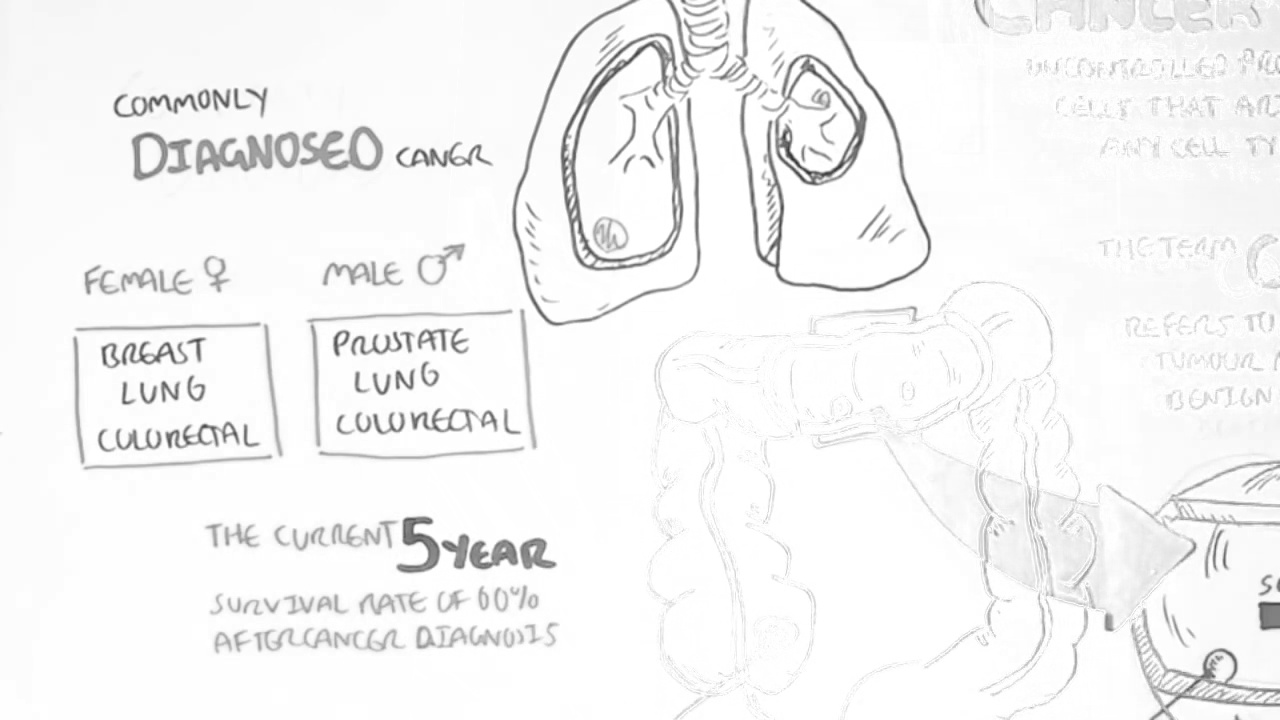 COMMONLY
DIAGNOSED CANCR
FEMALE ♀
BREAST
LUNG
COLORECTAL
MALE ♂
PROSTATE
LUNG
COLORECTAL
THE CURRENT 5 YEAR
SURVIVAL RATE OF 60%
AFTER CANCER DIAGNOSIS
CANCER
UNCONTROLLED PRO
CELLS THAT AR
ANY CELL TY
THE TERM
REFERS TO
TUMOUR
BENIGN